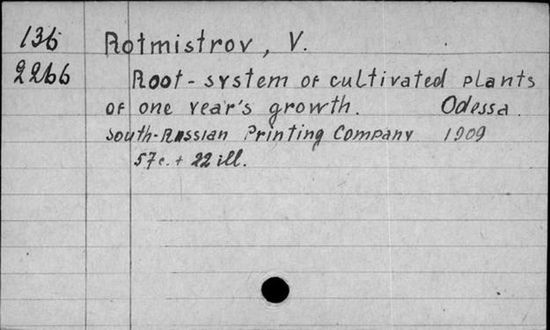 136 Rotmistrov, V.
2266 Root-system of cultivated plants
of one year's growth. Odessa.
South-Russian Printing Company 1909
57c. + 22 ill.